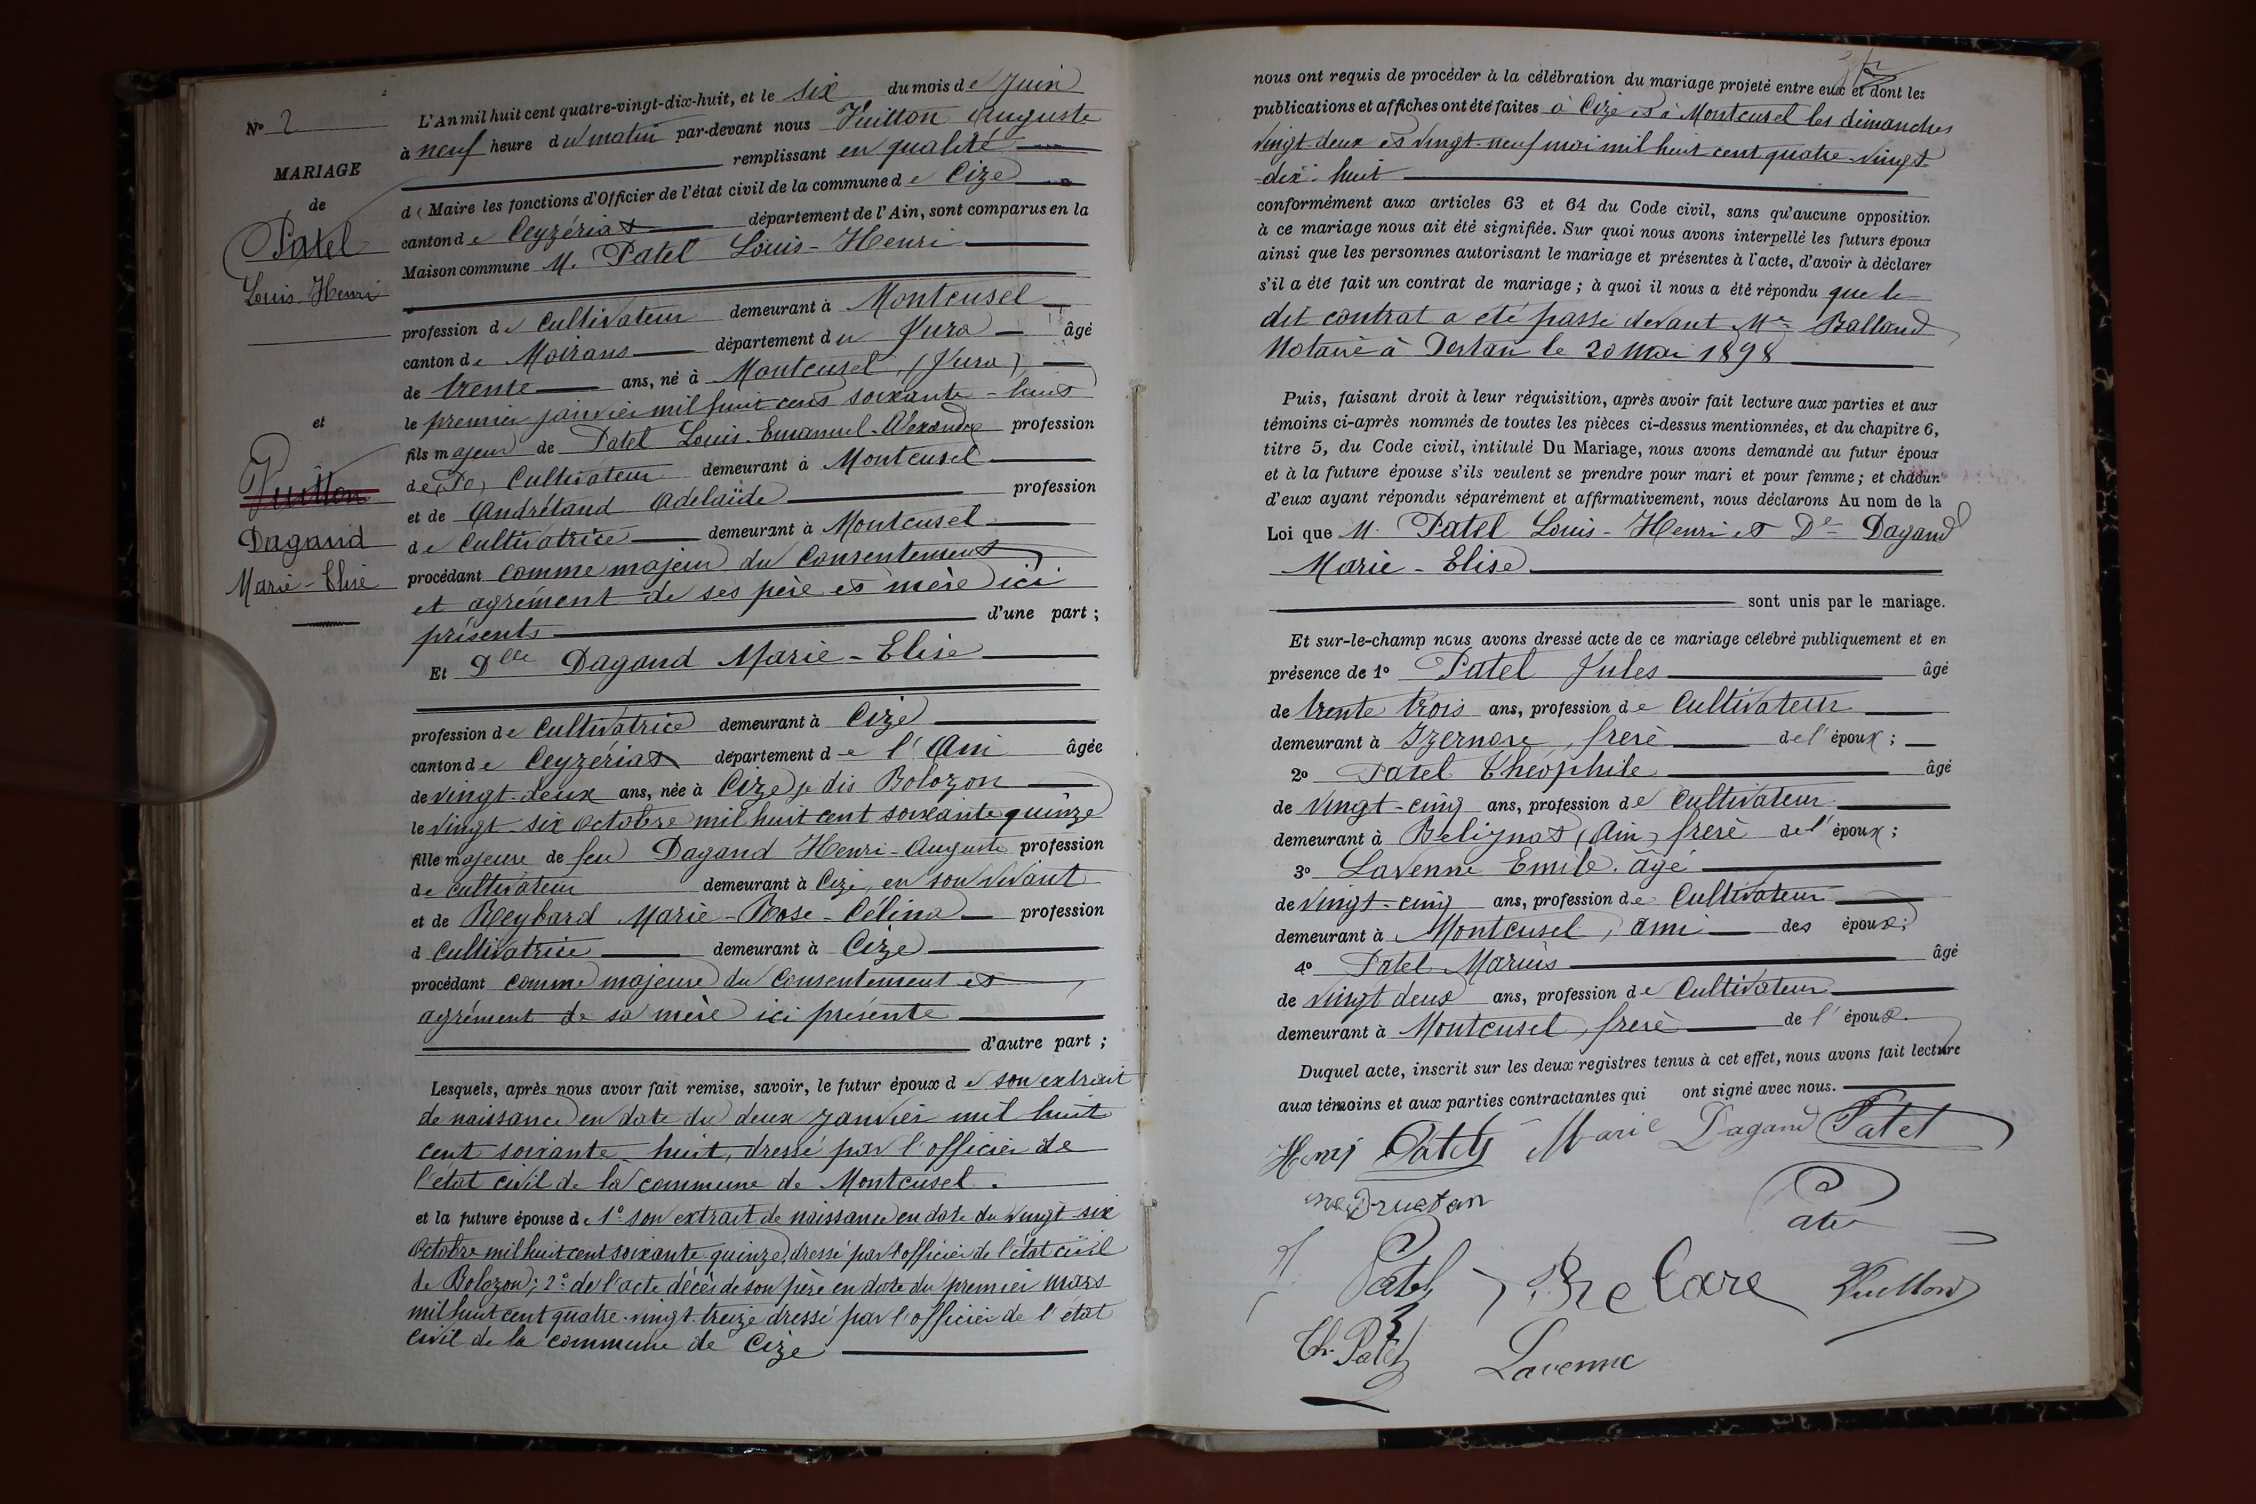 N° 2
MARIAGE
de
Patel
Louis-Henri
et
Vuitton
Dagand
Marie-Elise
L'An mil huit cent quatre-vingt-dix-huit, et le six du mois de Juin
à neuf heure du matin par-devant nous Vuitton Auguste
remplissant en qualité
de Maire les fonctions d'Officier de l'état civil de la commune de Cize
canton de Ceyzériat département de l'Ain, sont comparus en la
Maison commune M. Patel Louis-Henri
profession de Cultivateur demeurant à Montcusel
canton de Moirans département du Jura âgé
de trente ans, né à Montcusel, (Jura)
le premier janvier mil huit cent soixante-huit
fils majeur de Patel Louis-Emanuel-Alexandre profession
de (Do) Cultivateur demeurant à Montcusel
et de Andrétand Adelaïde profession
de Cultivatrice demeurant à Montcusel
procédant comme majeur du Consentement
et agrément de ses père et mère ici
présents d'une part ;
Et Dlle Dagand Marie-Elise
profession de Cultivatrice demeurant à Cize
canton de Ceyzériat département de l'Ain âgée
de vingt-deux ans, née à Cize je dis Bolozon
le vingt-six octobre mil huit cent soixante quinze
fille majeure de feu Dagand Henri-Auguste profession
de cultivateur demeurant à Cize, en son vivant
et de Reybard Marie-Rose-Célina profession
d Cultivatrice demeurant à Cize
procédant comme majeure du Consentement et
agrément de sa mère ici présente
d'autre part ;
Lesquels, après nous avoir fait remise, savoir, le futur époux de son extrait
de naissance en date du deux janvier mil huit
cent soixante-huit, dressé par l'officier de
l'état civil de la commune de Montcusel.
et la future épouse de 1° son extrait de naissance en date du vingt-six
Octobre mil huit cent soixante-quinze, dressé par l'officier de l'état civil
de Bolozon; 2° de l'acte décès de son père en date du premier mars
mil huit cent quatre-vingt-treize dressé par l'officier de l'état
civil de la commune de Cize
nous ont requis de procéder à la célébration du mariage projeté entre eux et dont les
publications et affiches ont été faites à Cize et à Montcusel les dimanches
vingt-deux et vingt-neuf mai mil huit cent quatre-vingt
dix-huit
conformément aux articles 63 et 64 du Code civil, sans qu'aucune opposition
à ce mariage nous ait été signifiée. Sur quoi nous avons interpellé les futurs époux
ainsi que les personnes autorisant le mariage et présentes à l'acte, d'avoir à déclarer
s'il a été fait un contrat de mariage ; à quoi il nous a été répondu que le
dit contrat a été passé devant Me Balland
Notaire à Dortan le 20 Mai 1898
Puis, faisant droit à leur réquisition, après avoir fait lecture aux parties et aux
témoins ci-après nommés de toutes les pièces ci-dessus mentionnées, et du chapitre 6,
titre 5, du Code civil, intitulé Du Mariage, nous avons demandé au futur époux
et à la future épouse s'ils veulent se prendre pour mari et pour femme ; et chacun
d'eux ayant répondu séparément et affirmativement, nous déclarons Au nom de la
Loi que M. Patel Louis-Henri et De Dagand
Marie-Elise
sont unis par le mariage.
Et sur-le-champ nous avons dressé acte de ce mariage célébré publiquement et en
présence de 1° Patel Jules âgé
de trente trois ans, profession de Cultivateur
demeurant à Izernore, frère de l'époux ;
2° Patel Théophile âgé
de vingt-cinq ans, profession de Cultivateur
demeurant à Belignat (Ain) frère de l'époux ;
3° Lavenne Emile. âgé
de vingt-cinq ans, profession de Cultivateur
demeurant à Montcusel, ami des époux ;
4° Patel Marius âgé
de vingt deux ans, profession de Cultivateur
demeurant à Montcusel, frère de l'époux.
Duquel acte, inscrit sur les deux registres tenus à cet effet, nous avons fait lecture
aux témoins et aux parties contractantes qui ont signé avec nous.
Henri Patel Marie Dagand Patel
Patel
Vuitton
Th. Patel Lavenne